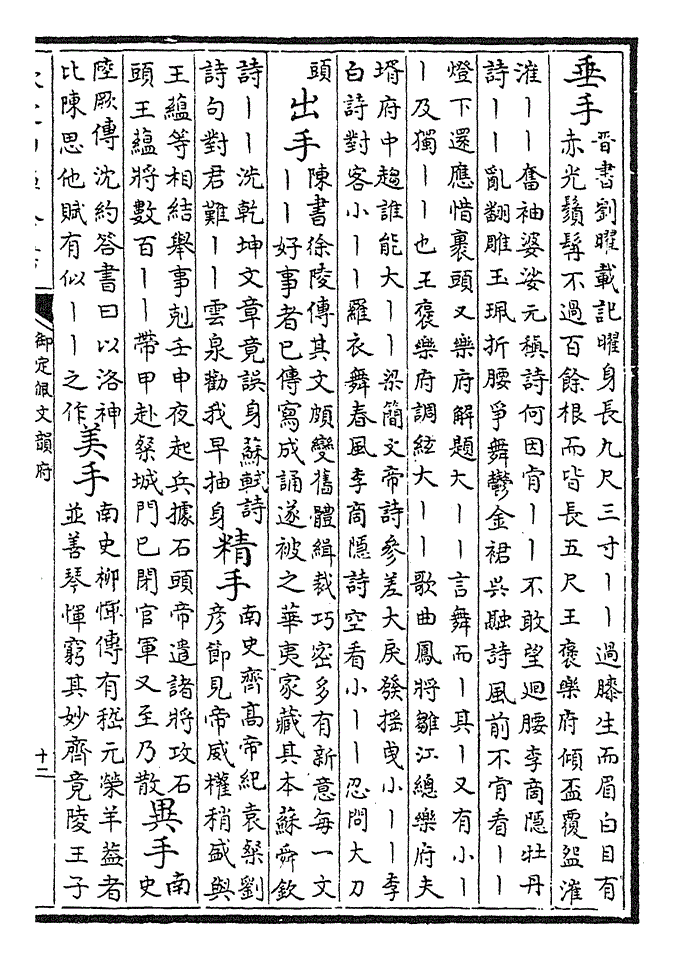 垂手
晉書劉曜載記曜身長九尺三寸丨丨過膝生而眉白目有
赤光鬚髯不過百餘根而皆長五尺王褒樂府傾盃覆盌漼
漼丨丨奮袖婆娑元稹詩何因肯丨丨不敢望迴腰李商隱牡丹
詩丨丨亂翻雕玉珮折腰爭舞鬱金裙吳融詩風前不肯看丨丨
燈下還應惜裹頭又樂府解題大丨丨言舞而丨其丨又有小丨
丨及獨丨丨也王褒樂府調絃大丨丨歌曲鳳將雛江總樂府夫
壻府中趨誰能大丨丨梁簡文帝詩參差大戾發搖曳小丨丨李
白詩對客小丨丨羅衣舞春風李商隱詩空看小丨丨忍問大刀
頭
出手
陳書徐陵傳其文頗變舊體緝裁巧密多有新意每一文
丨丨好事者已傳寫成誦遂被之華夷家藏其本蘇舜欽
詩丨丨洗乾坤文章竟誤身蘇軾詩
詩句對君難丨丨雲泉勸我早抽身
精手
南史齊高帝紀袁粲劉
彥節見帝威權稍盛與
王蘊等相結舉事剋壬申夜起兵據石頭帝遣諸將攻石
頭王蘊將數百丨丨帶甲赴粲城門已閉官軍又至乃散
異手
南
史
陸厥傳沈約答書曰以洛神
比陳思他賦有似丨丨之作
美手
南史柳惲傳有嵇元榮羊蓋者
並善琴惲窮其妙齊竟陵王子
御定佩文韻府
十二